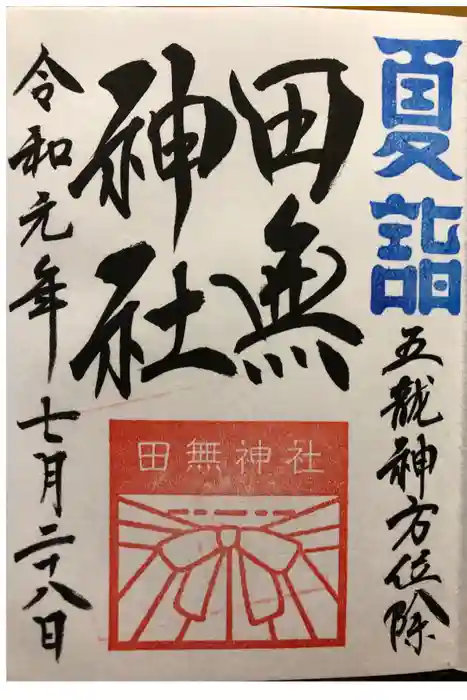 夏詣
五龍神方位除
田無
神社
田無神社
令和元年七月二十八日